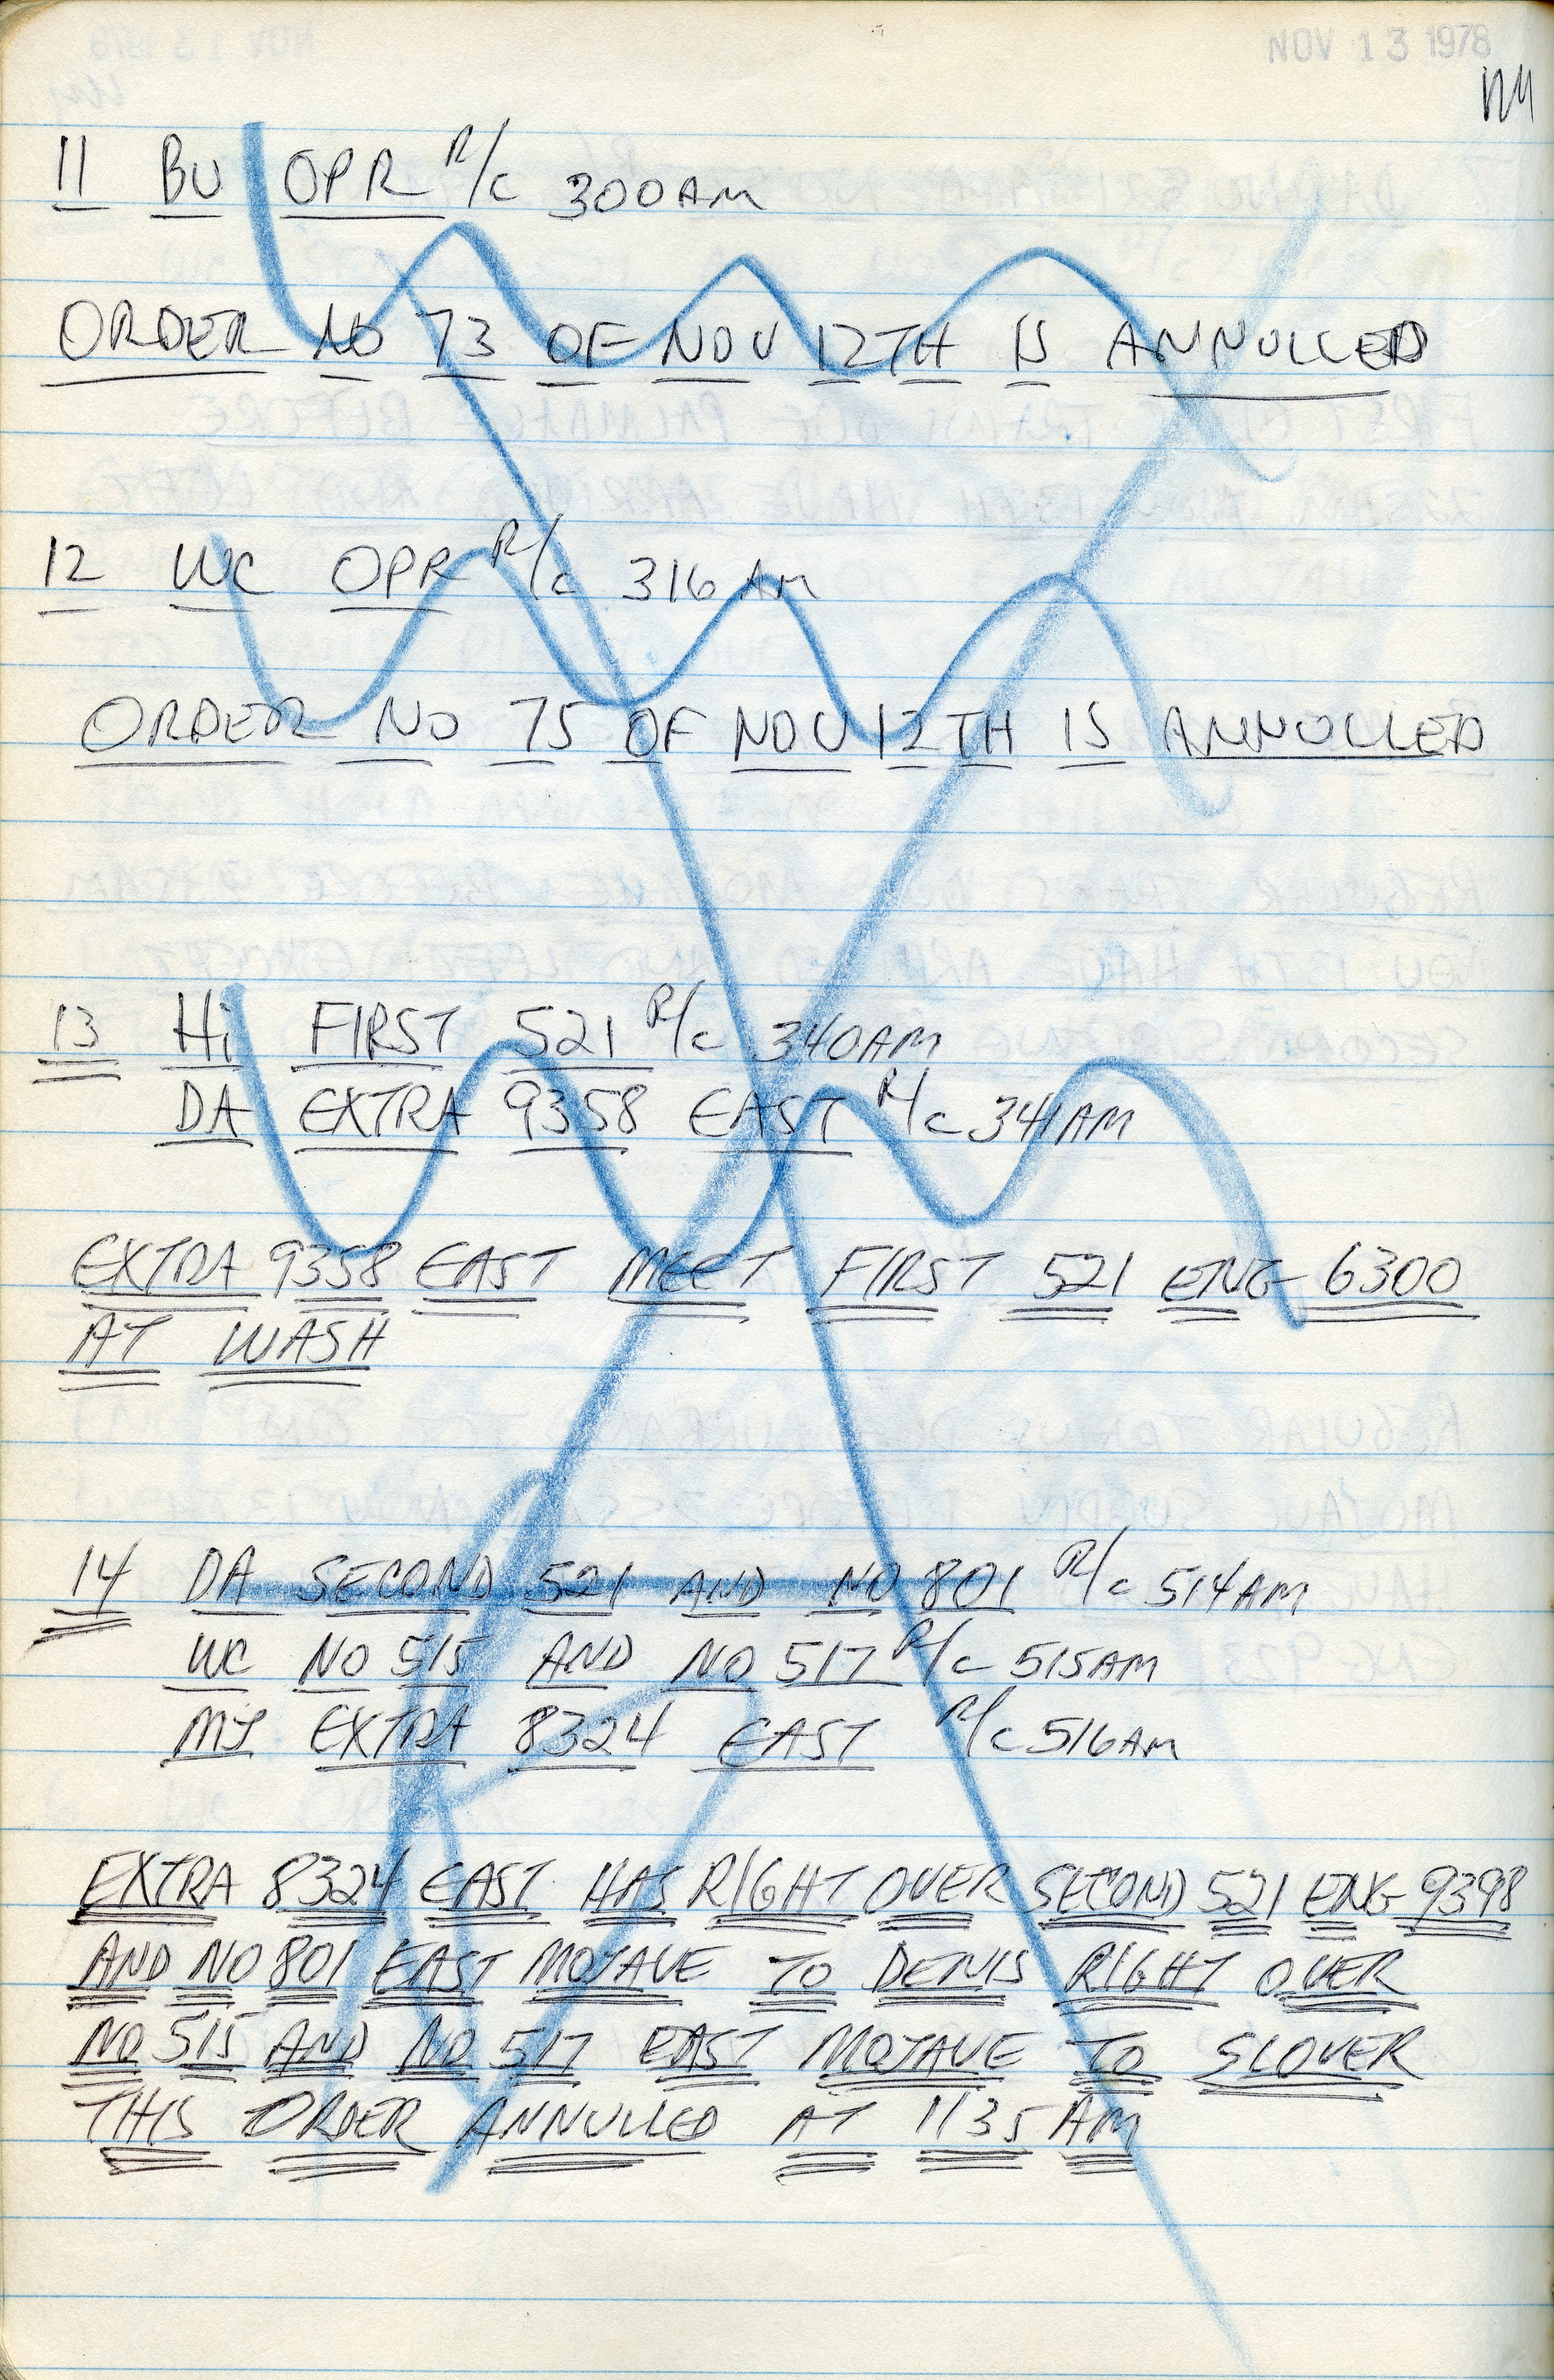 NOV 13 1978
11 BU OPR R/C 300AM
ORDER NO 73 OF NOV 12TH IS ANNULLED
12 WC OPR R/C 316 AM
ORDER NO 75 OF NOV 12TH IS ANNULLED
13 Hi FIRST 521 R/C 340AM
DA EXTRA 9358 EAST R/C 341AM
EXTRA 9358 EAST MEET FIRST 521 ENG 6300
AT WASH
14 DA SECOND 521 AND NO 801 R/C 514AM
WC NO 515 AND NO 517 R/C 515AM
MJ EXTRA 8324 EAST R/C 516AM
EXTRA 8324 EAST HAS RIGHT OVER SECOND 521 ENG 9398
AND NO 801 EAST MOJAVE TO DENIS RIGHT OVER
NO 515 AND NO 517 EAST MOJAVE TO SLOVER
THIS ORDER ANNULLED AT 1135 AM